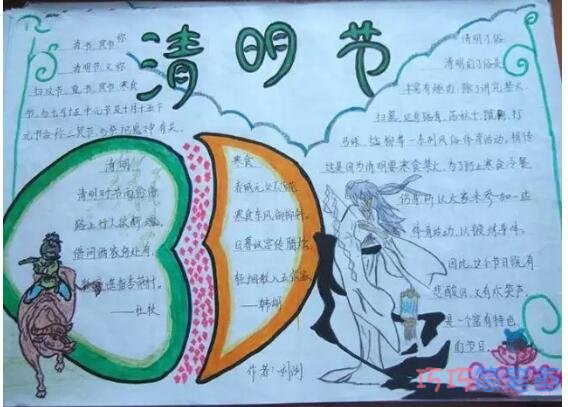 清明节
清明节,又称
扫坟节、鬼节、冥节,寒食
节,与七月十五中元节及十月十五下
元节合称三冥节,与祭祀鬼神有关。
清明
清明时节雨纷纷
路上行人欲断魂。
借问酒家何处有,
牧童遥指杏花村。
——杜牧
寒食
春城无处不飞花
寒食东风御柳斜。
日暮汉宫传腊烛
轻烟散入五侯家
——韩翃
清明习俗
清明节的习俗是
丰富有趣的,除了讲究禁火
扫墓,还有踏青、荡秋千、蹴鞠、打
马球、插柳等一系列风俗体育活动。相传
这是因为清明要寒食禁火,为了防止寒食冷餐
伤身,所以大家来参加一些
体育活动,以锻炼身体。
因此,这个节日既有
悲酸泪,又有欢笑声,
是一个富有特色
的节日。
作者: